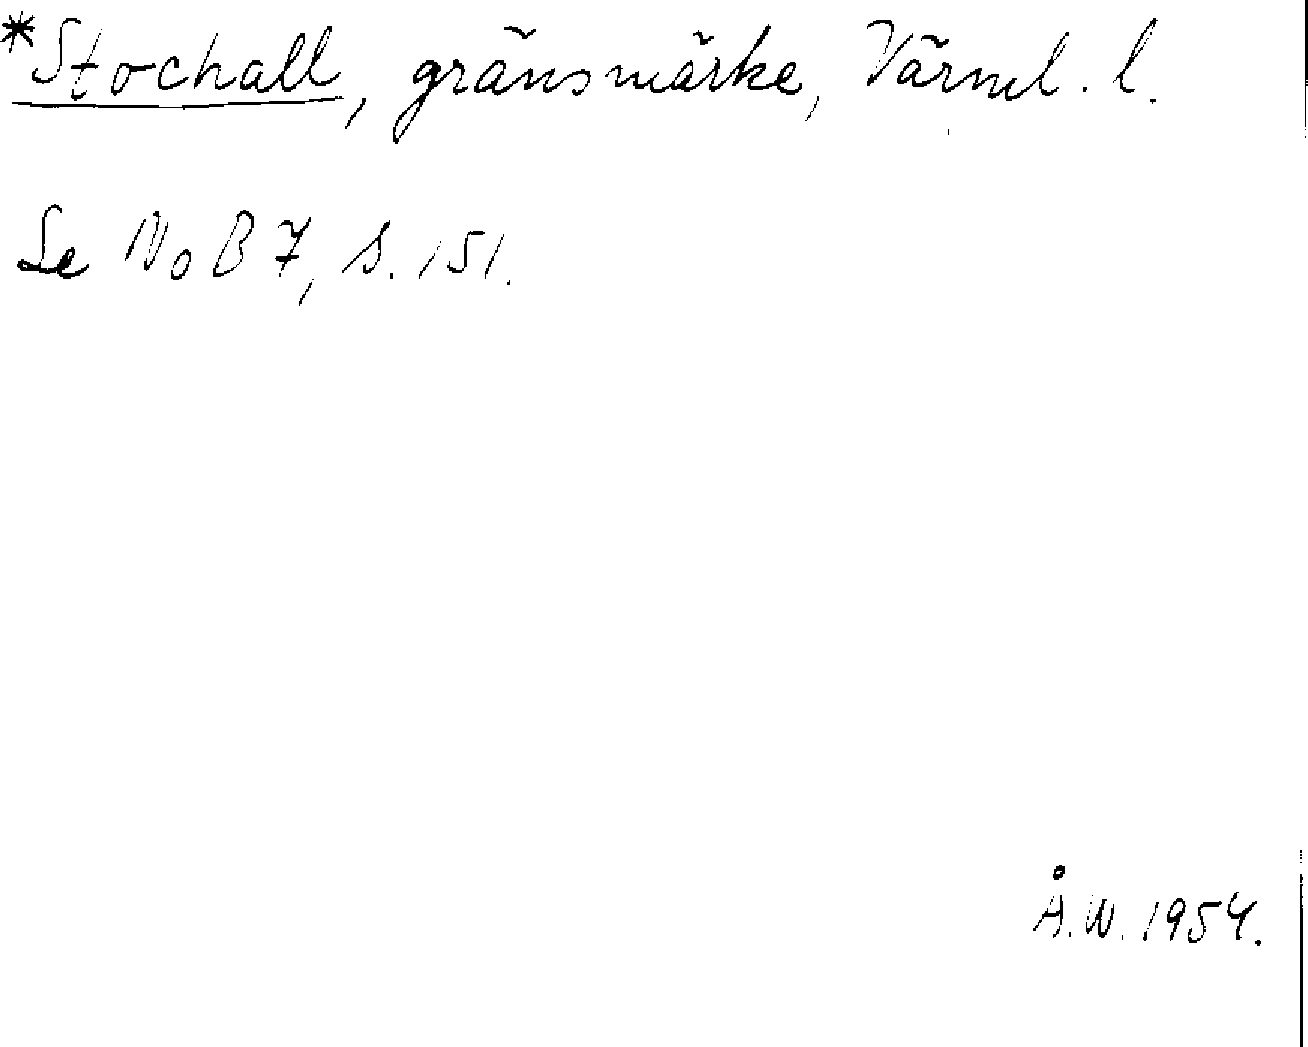 *Stochall, gränsmärke, Värml. l.
Se NoB 7, s. 151.
Å.W. 1954.